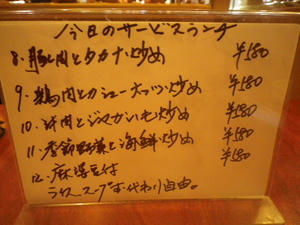 今日のサービスランチ
8. 豚肉とタカナ炒め ¥580
9. 鶏肉とカシューナッツ炒め ¥580
10. 豚肉とジャガいも炒め ¥580
11. 季節野菜と海鮮炒め ¥580
12. 麻婆豆付 ¥580
ライス、スープお代わり自由。